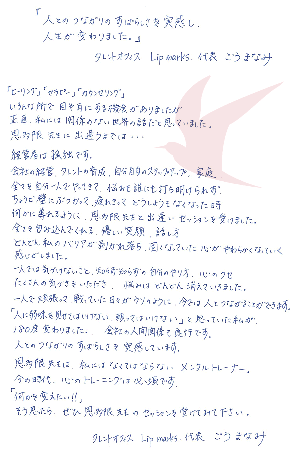 「人とのつながりのすばらしさを実感し、
人生が変わりました。」
タレントオフィス Lip marks. 代表 ごうまなみ
「ヒーリング」「セラピー」「カウンセリング」
いろんな所で目や耳にする機会がありましたが
正直、私には関係のない世界の話だと思っていました。
恩多限先生に出逢うまでは…
経営者は孤独です。
会社の経営、タレントの育成、自分自身のステップアップ、家庭
全てを自分一人でやってきて、悩みを誰にも打ち明けられず、
ちょうど壁にぶつかって、疲れきって どうしようもなくなった時
何かに導かれるように、恩多限先生と出逢い セッションを受けました。
全てを包み込んでくれる、優しい笑顔、話し方
どんどん私のバリアが剥がれ落ち、固くなっていた心がやわらかくなっていく
感じがしました。
一人では気付けないこと、知らず知らずの自分のやり方、心のクセ
たくさんの気づきをいただき、悩みはどんどん消えていきました。
一人で頑張って戦っていた日々がウソのように、今は人とつながることができます。
「人に弱味を見せてはいけない 頼ってはいけない」と思っていた私が、
180度変わりました。会社の人間関係も良好です。
人とのつながりのすばらしさを実感しています。
恩多限先生は、私にはなくてはならないメンタルトレーナー。
今の時代、心のトレーニングは必須です。
「何かを変えたい!!」
そう思ったら、ぜひ恩多限先生のセッションを受けてみて下さい。
タレントオフィス Lip marks. 代表 ごうまなみ